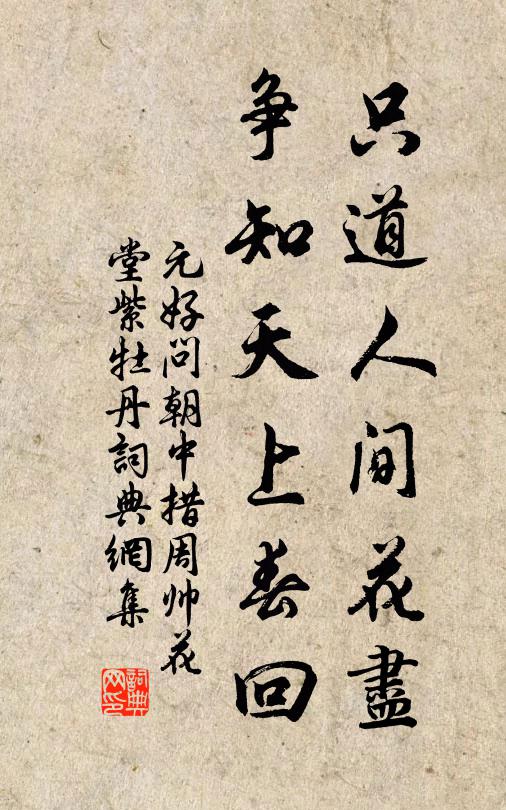 只道人间花盡
争知天上春回
元好问朝中措周帅花
堂紫牡丹詞典網集
詞典
网印